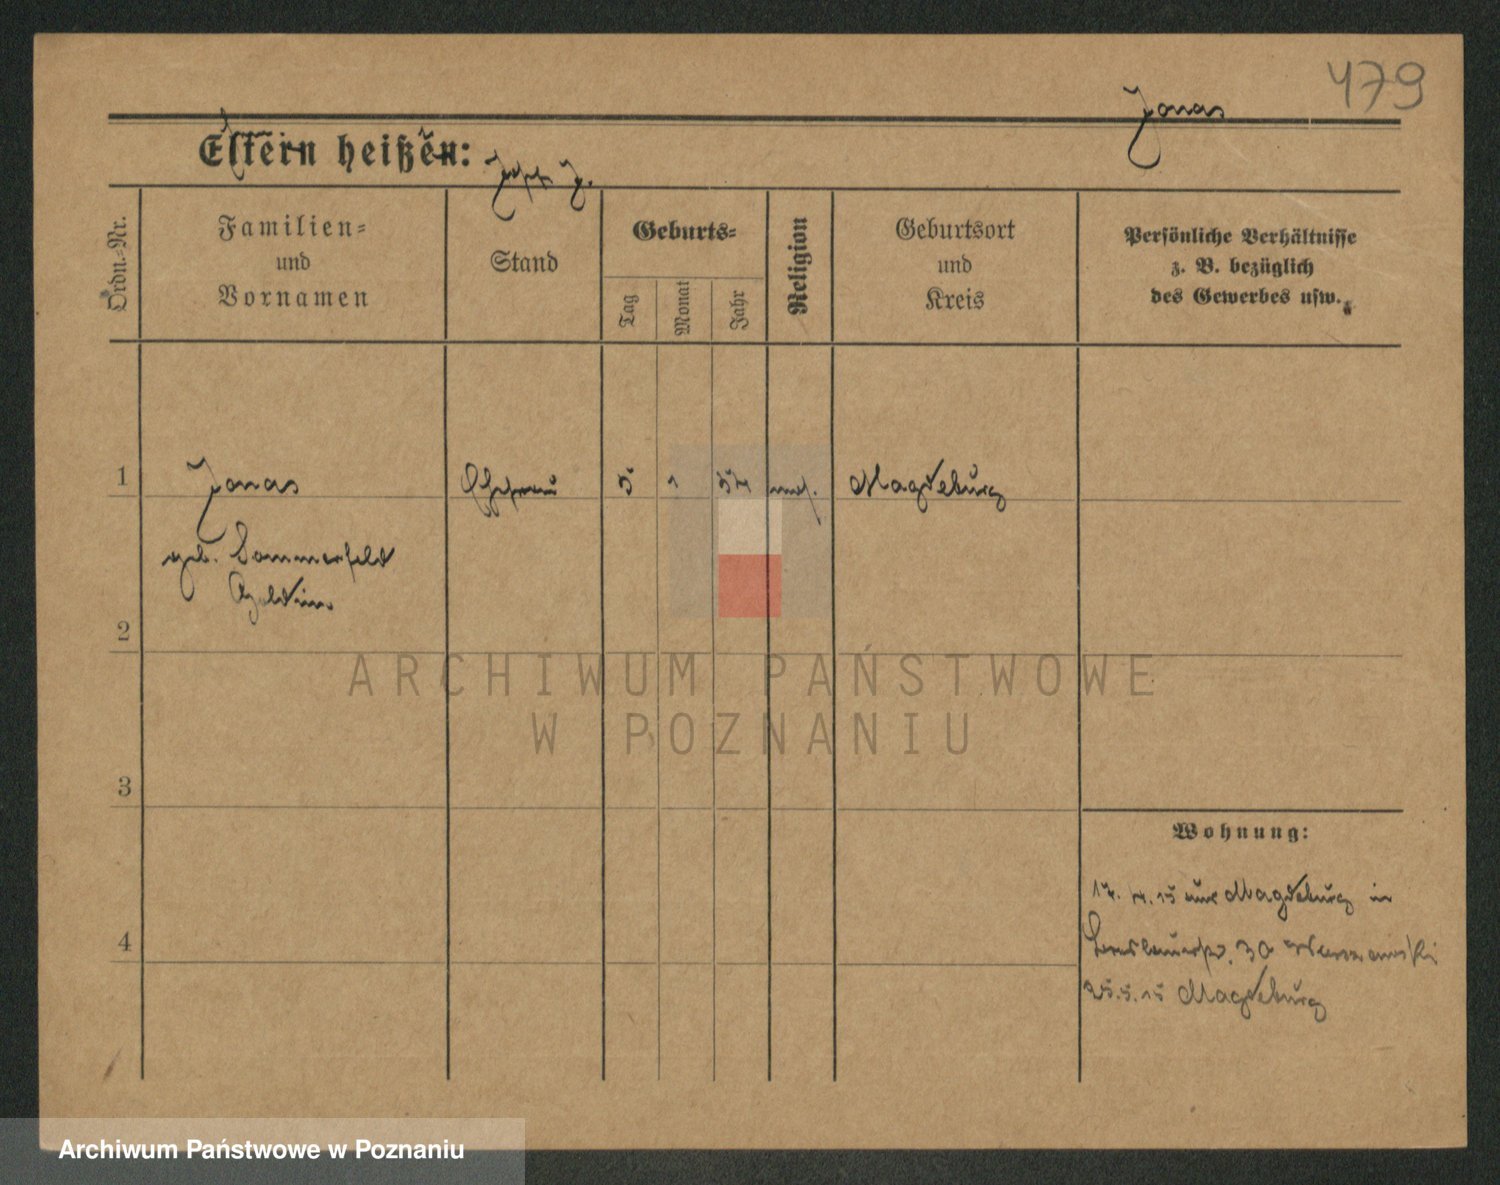 479
Jonas
Eltern heißen:
Ordn.-Nr.
Familien-
und
Vornamen
Stand
Geburts-
Tag
Monat
Jahr
Religion
Geburtsort
und
Kreis
Persönliche Verhältnisse
z. B. bezüglich
des Gewerbes usw.
1 Jonas Ehefrau 5 1 54 mos. Magdeburg
geb. Sommerfeld
2
ARCHIWUM PAŃSTWOWE
W POZNANIU
3
Wohnung:
17. 4. 15 aus Magdeburg in
4
30
25. 5. 15 Magdeburg
Archiwum Państwowe w Poznaniu